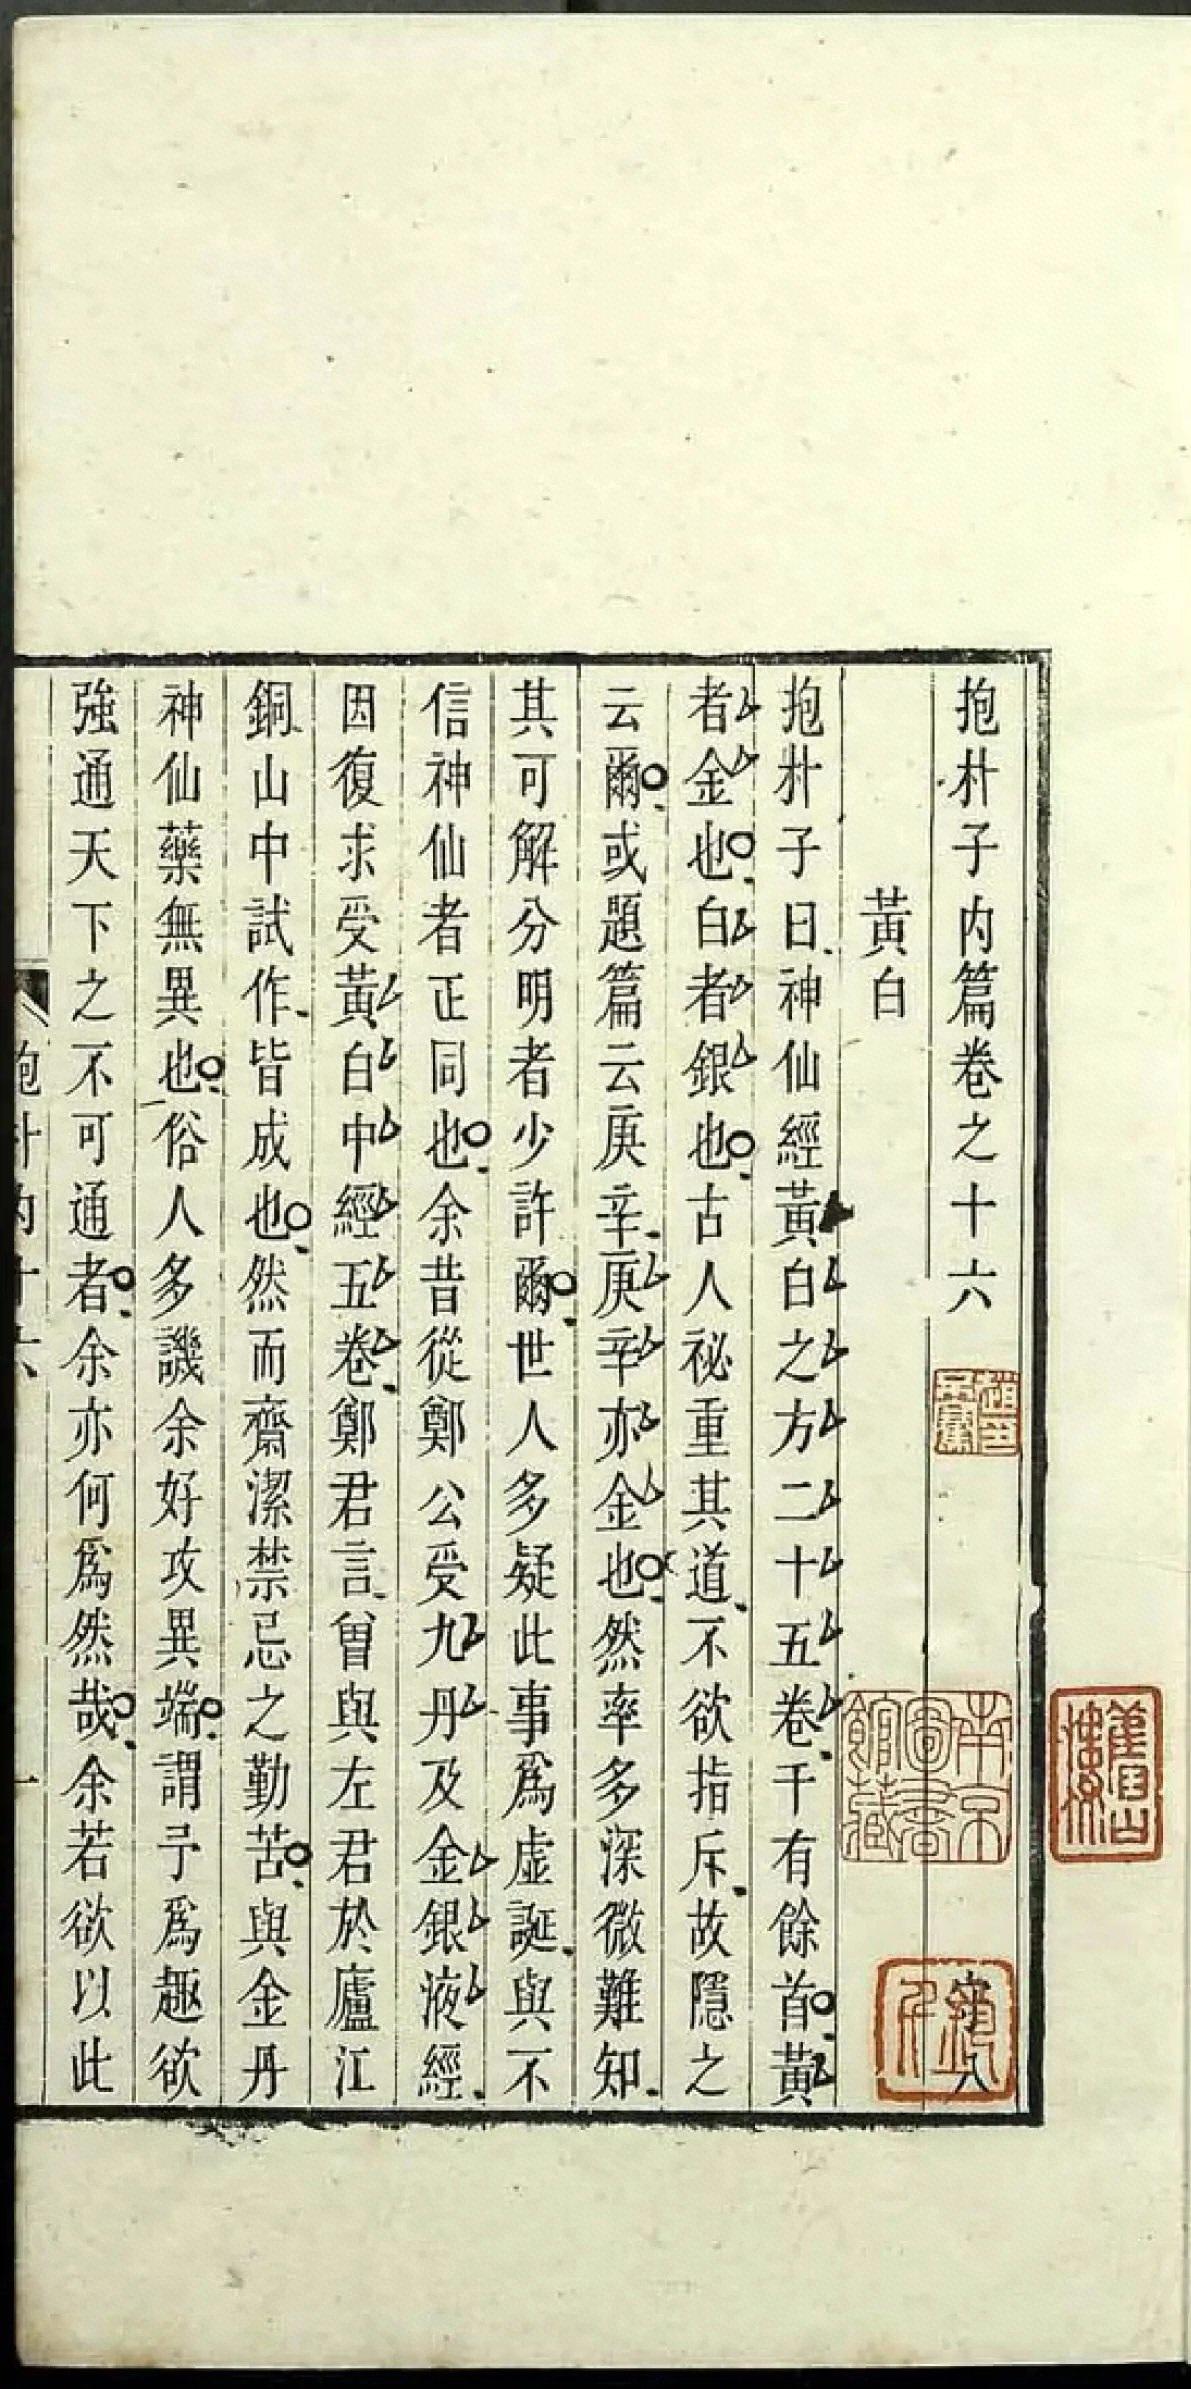 抱朴子内篇卷之十六
黃白
抱朴子曰神仙經黃白之方二十五卷千有餘首黃
者金也白者銀也古人祕重其道不欲指斥故隱之
云爾或題篇云庚辛庚辛亦金也然率多深微難知
其可解分明者少許爾世人多疑此事爲虛誕與不
信神仙者正同也余昔從鄭公受九丹及金銀液經
因復求受黃白中經五卷鄭君言曾與左君於廬江
銅山中試作皆成也然而齋潔禁忌之勤苦與金丹
神仙藥無異也俗人多譏余好攻異端謂予爲趣欲
強通天下之不可通者余亦何爲然哉余若欲以此
抱朴内十六
一
南京圖書館藏